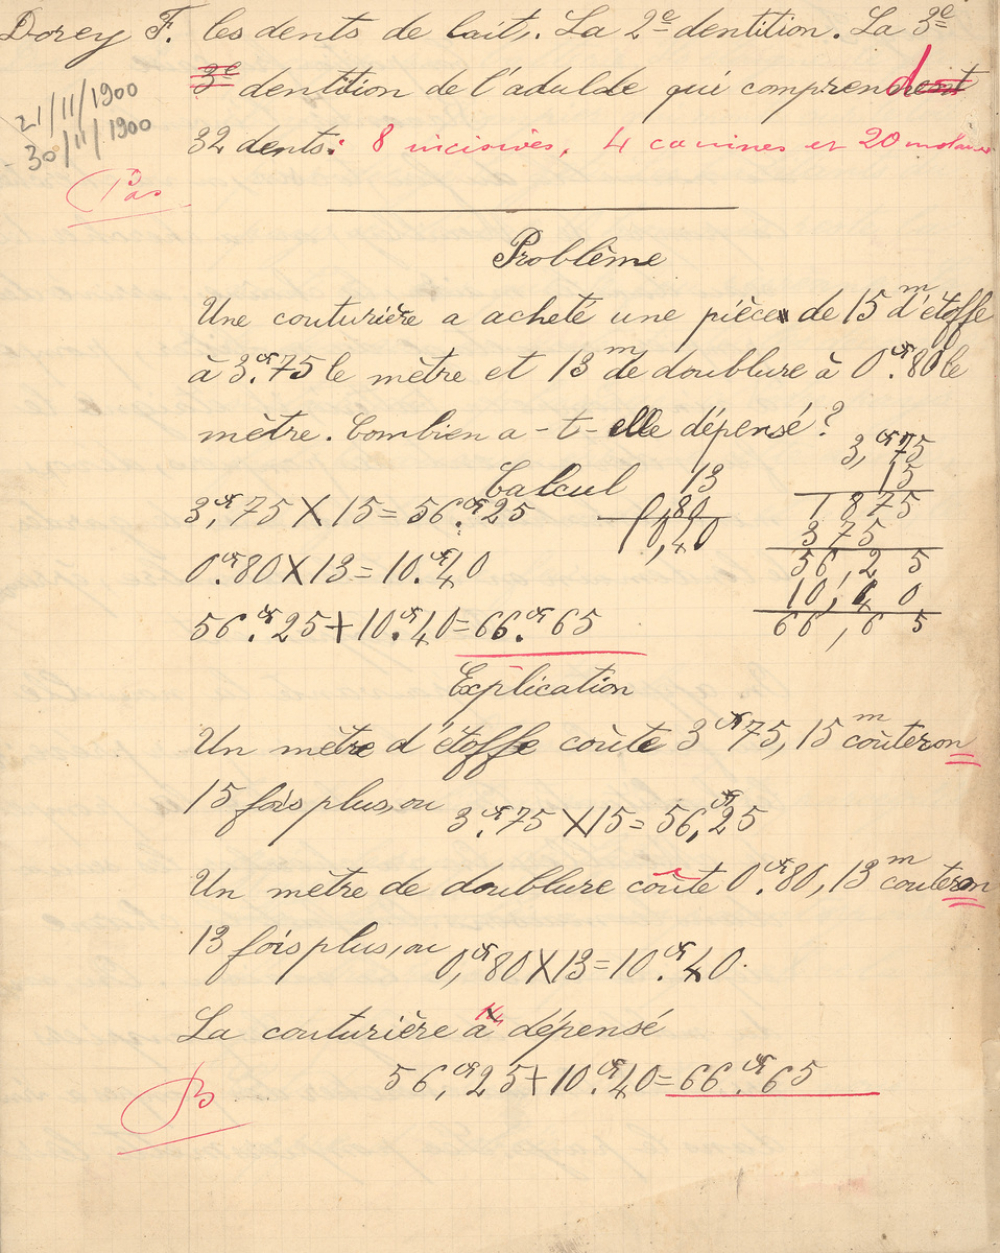 Dorey F. les dents de lait. La 2e dentition. La 3e
21/11/1900
30/11/1900
3e dentition de l'adulde qui comprend
32 dents: 8 incisives, 4 canines et 20 molaires
Pas
Problème
Une couturière a acheté une pièce de 15m d'étoffe
à 3fr.75 le mètre et 13m de doublure à 0fr.80 le
mètre. Combien a-t-elle dépensé?
Calcul
3fr,75 X 15 = 56fr.25
0fr.80 X 13 = 10.fr40
56.fr25 + 10.fr40 = 66.fr65
13
0,80
10,40
3,fr75
15
1875
375
56,25
10,40
66,65
Explication
Un mètre d'étoffe coûte 3fr75, 15m coûteron
15 fois plus, ou 3fr.75 X 15 = 56,fr25
Un mètre de doublure coûte 0fr.80, 13m couteron
13 fois plus, ou 0,fr80 X 13 = 10.fr40.
La couturière a dépensé
56,fr25 + 10.fr40 = 66.fr65
B